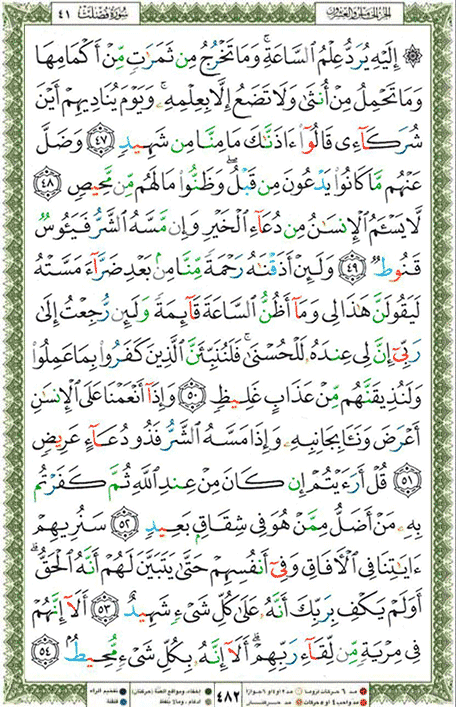 الجزء الخامس والعشرون سورة فصلت ٤١
۞ إِلَيْهِ يُرَدُّ عِلْمُ ٱلسَّاعَةِ ۚ وَمَا تَخْرُجُ مِن ثَمَرَٰتٍ مِّنْ أَكْمَامِهَا
وَمَا تَحْمِلُ مِنْ أُنثَىٰ وَلَا تَضَعُ إِلَّا بِعِلْمِهِۦ ۚ وَيَوْمَ يُنَادِيهِمْ أَيْنَ
شُرَكَآءِى قَالُوٓا۟ ءَاذَنَّٰكَ مَا مِنَّا مِن شَهِيدٍ ٤٧ وَضَلَّ
عَنْهُم مَّا كَانُوا۟ يَدْعُونَ مِن قَبْلُ ۖ وَظَنُّوا۟ مَا لَهُم مِّن مَّحِيصٍ ٤٨
لَّا يَسْـَٔمُ ٱلْإِنسَٰنُ مِن دُعَآءِ ٱلْخَيْرِ وَإِن مَّسَّهُ ٱلشَّرُّ فَيَـُٔوسٌ
قَنُوطٌ ٤٩ وَلَئِنْ أَذَقْنَٰهُ رَحْمَةً مِّنَّا مِنۢ بَعْدِ ضَرَّآءَ مَسَّتْهُ
لَيَقُولَنَّ هَٰذَا لِى وَمَآ أَظُنُّ ٱلسَّاعَةَ قَآئِمَةً وَلَئِن رُّجِعْتُ إِلَىٰ
رَبِّىٓ إِنَّ لِى عِندَهُۥ لَلْحُسْنَىٰ ۚ فَلَنُنَبِّئَنَّ ٱلَّذِينَ كَفَرُوا۟ بِمَا عَمِلُوا۟
وَلَنُذِيقَنَّهُم مِّنْ عَذَابٍ غَلِيظٍ ٥٠ وَإِذَآ أَنْعَمْنَا عَلَى ٱلْإِنسَٰنِ
أَعْرَضَ وَنَـَٔا بِجَانِبِهِۦ وَإِذَا مَسَّهُ ٱلشَّرُّ فَذُو دُعَآءٍ عَرِيضٍ
٥١ قُلْ أَرَءَيْتُمْ إِن كَانَ مِنْ عِندِ ٱللَّهِ ثُمَّ كَفَرْتُم
بِهِۦ مَنْ أَضَلُّ مِمَّنْ هُوَ فِى شِقَاقٍۭ بَعِيدٍ ٥٢ سَنُرِيهِمْ
ءَايَٰتِنَا فِى ٱلْءَافَاقِ وَفِىٓ أَنفُسِهِمْ حَتَّىٰ يَتَبَيَّنَ لَهُمْ أَنَّهُ ٱلْحَقُّ ۗ
أَوَلَمْ يَكْفِ بِرَبِّكَ أَنَّهُۥ عَلَىٰ كُلِّ شَىْءٍ شَهِيدٌ ٥٣ أَلَآ إِنَّهُمْ
فِى مِرْيَةٍ مِّن لِّقَآءِ رَبِّهِمْ ۗ أَلَآ إِنَّهُۥ بِكُلِّ شَىْءٍ مُّحِيطٌۢ ٥٤
٤٨٢